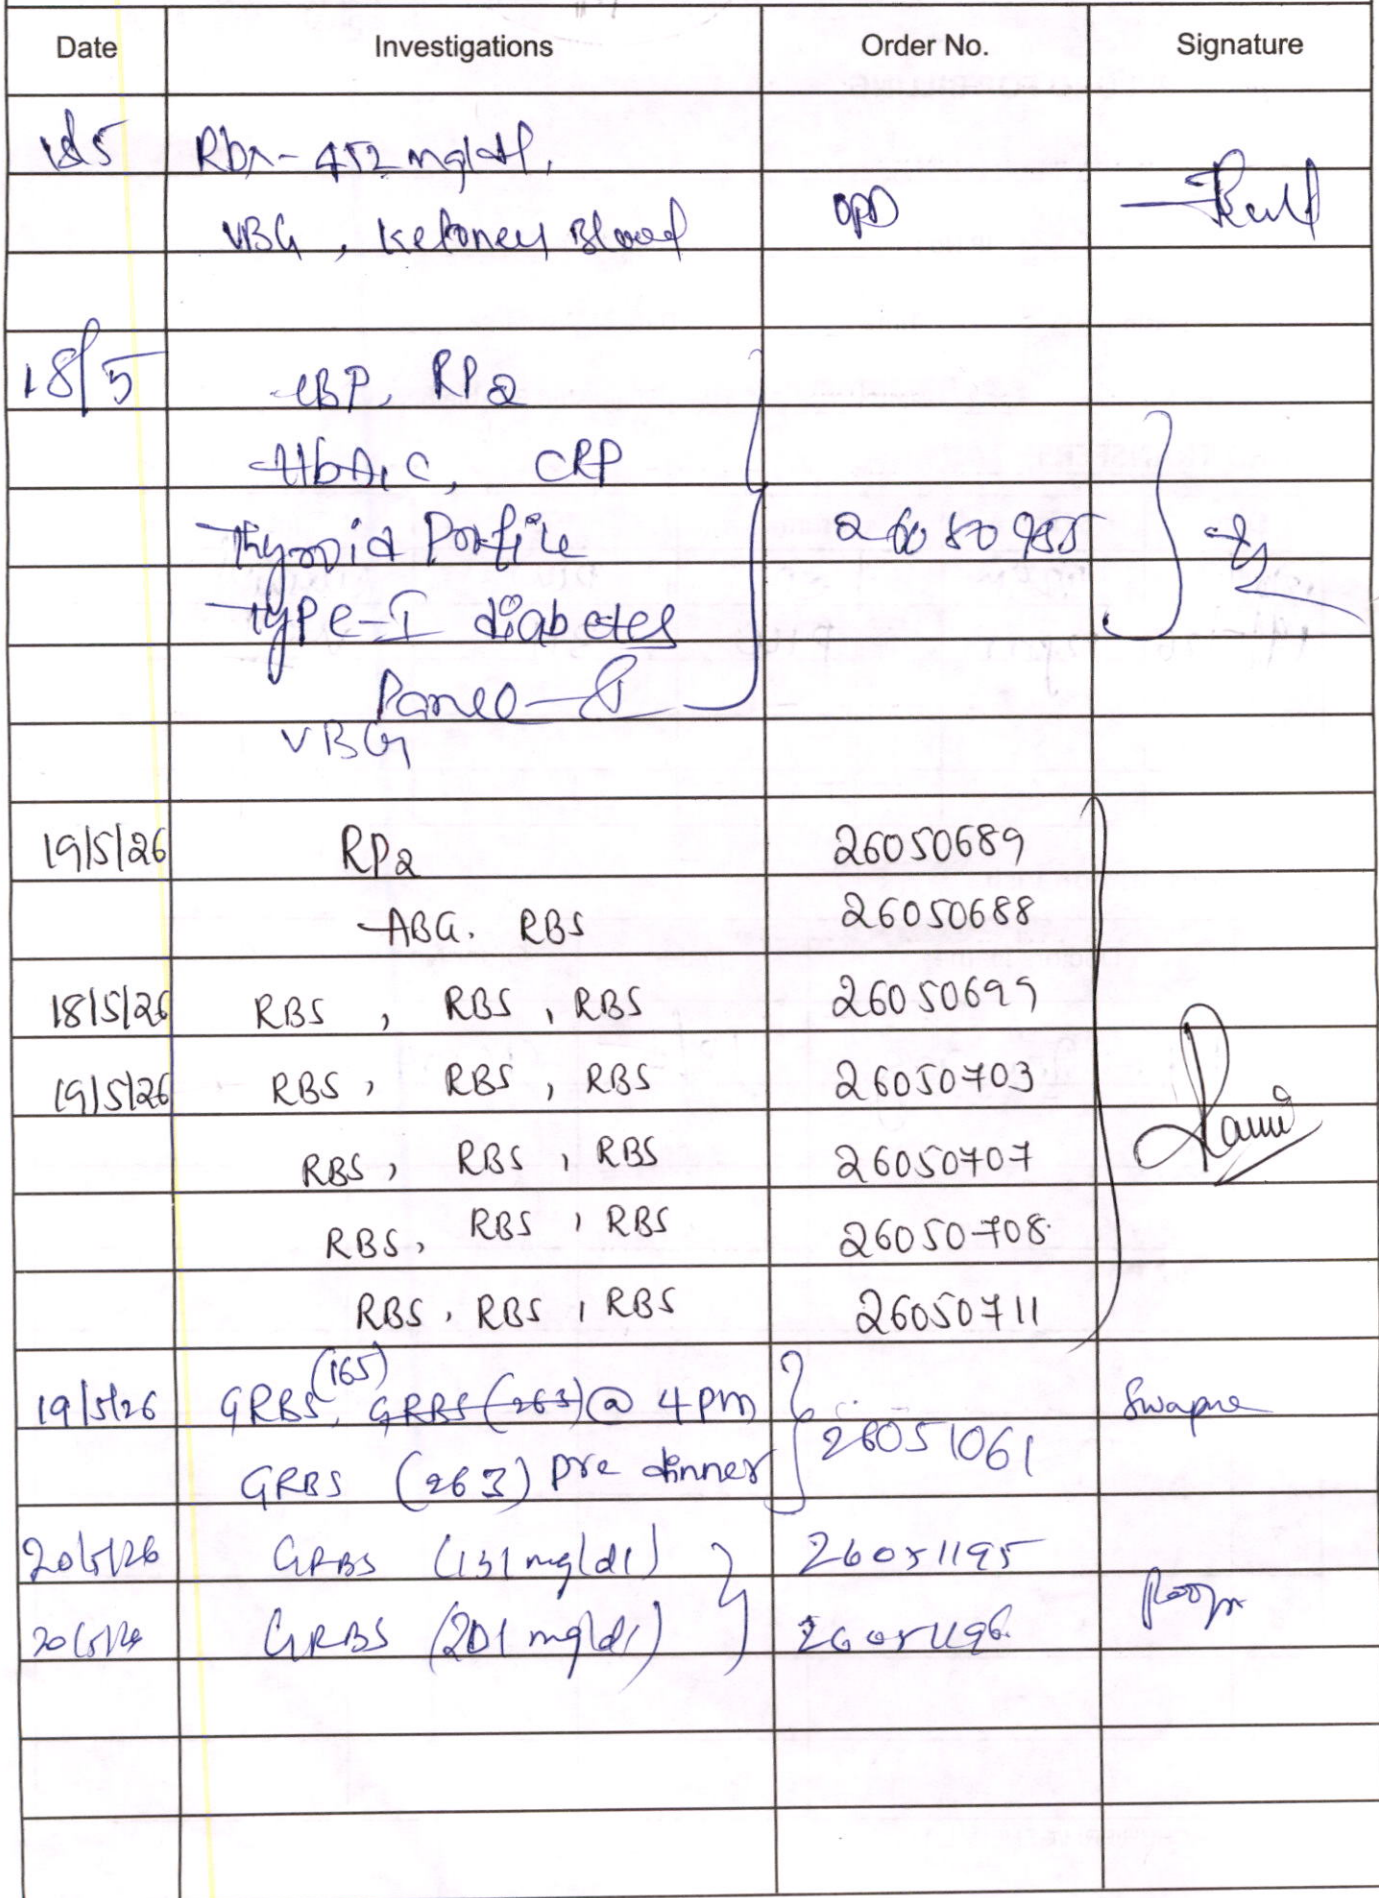 Date Investigations Order No. Signature
18/5 Rbs - 452 mg/dl,
VBG, Ketones Blood OPD
18/5 CBP, RP2
HbA1c, CRP
Thyroid Porfile
Type-I diabetes
Panel-I
VBG
19/5/26 RP2 26050689
ABG. RBS 26050688
18/5/26 RBS, RBS, RBS 26050699
19/5/26 RBS, RBS, RBS 26050703
RBS, RBS, RBS 26050707
RBS, RBS, RBS 26050708
RBS, RBS, RBS 26050711
19/5/26 GRBS (165), GRBS (263) @ 4 pm 26051061 Swapna
GRBS (263) Pre dinner
20/5/26 GRBS (131 mg/dl) 26051195
20/5/26 GRBS (201 mg/dl) 26051196